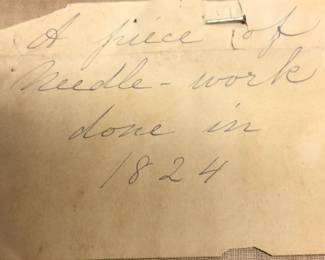 A piece of
Needle-work
done in
1824